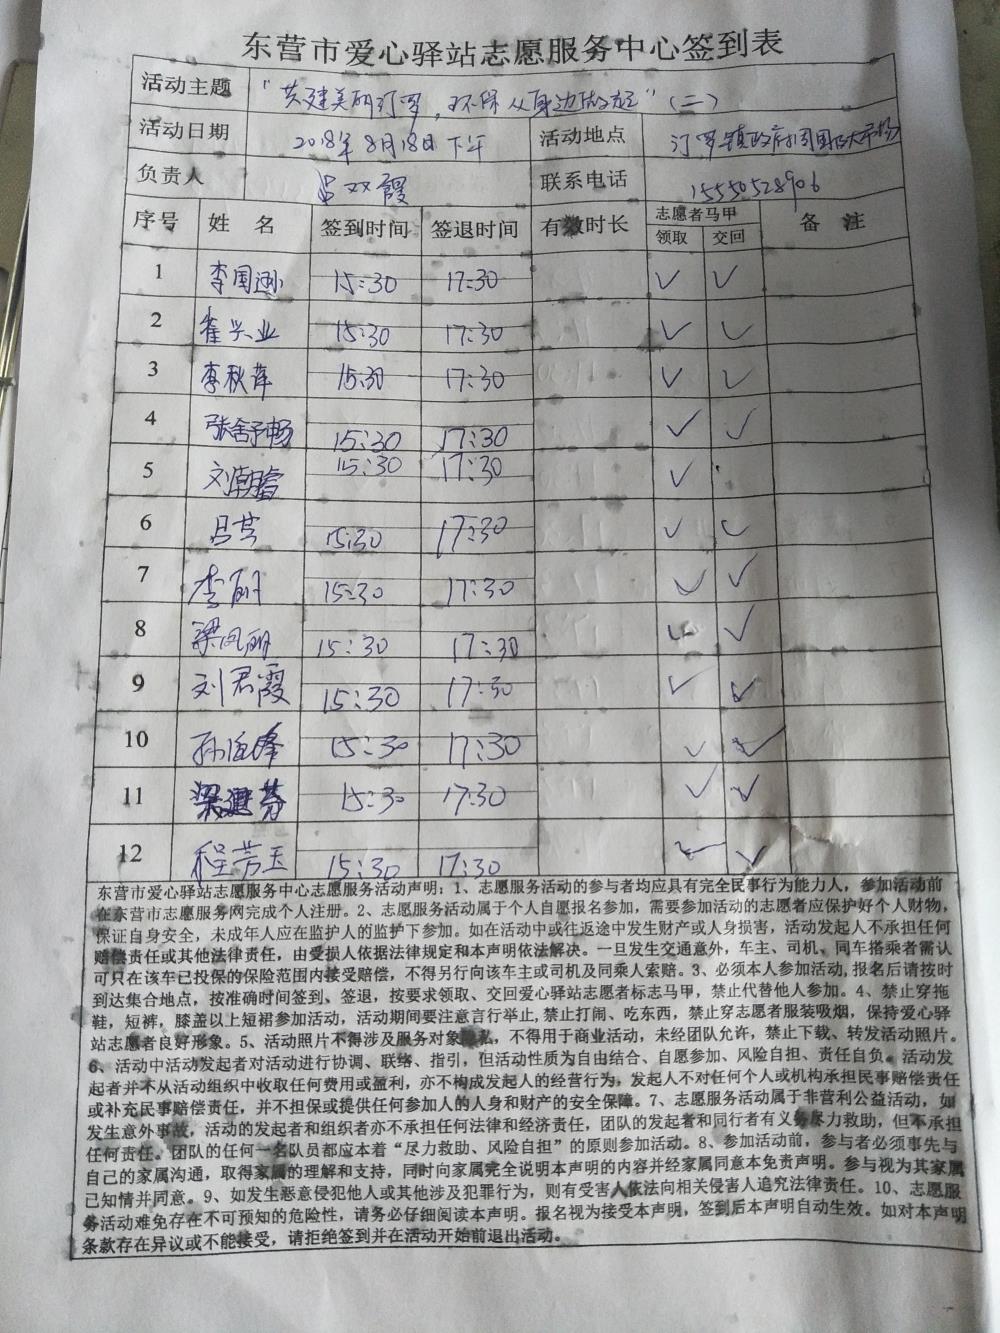 东营市爱心驿站志愿服务中心签到表
活动主题 “共建美丽汀罗,环保从身边做起”(二)
活动日期 2018年8月18日下午 活动地点 汀罗镇政府
负责人 吕双霞 联系电话 15550528906
序号 姓 名 签到时间 签退时间 有效时长 志愿者马甲 备 注
领取 交回
1 李国逊 15:30 17:30 ✓ ✓
2 崔兴业 15:30 17:30 ✓ ✓
3 李秋萍 15:30 17:30 ✓ ✓
4 张舍予畅 15:30 17:30 ✓ ✓
5 刘朝 15:30 17:30 ✓
6 吕芸 15:30 17:30 ✓ ✓
7 李丽 15:30 17:30 ✓ ✓
8 梁凤丽 15:30 17:30 ✓ ✓
9 刘君霞 15:30 17:30 ✓ ✓
10 孙 峰 15:30 17:30 ✓ ✓
11 梁 芬 15:30 17:30 ✓ ✓
12 程芳玉 15:30 17:30 ✓ ✓
东营市爱心驿站志愿服务中心志愿服务活动声明:1、志愿服务活动的参与者均应具有完全民事行为能力人,参加活动前
在东营市志愿服务网完成个人注册。2、志愿服务活动属于个人自愿报名参加,需要参加活动的志愿者应保护好个人财物,
保证自身安全,未成年人应在监护人的监护下参加。如在活动中或往返途中发生财产或人身损害,活动发起人不承担任何
赔偿责任或其他法律责任,由受损人依据法律规定和本声明依法解决。一旦发生交通意外,车主、司机、同车搭乘者需认
可只在该车已投保的保险范围内接受赔偿,不得另行向该车主或司机及同乘人索赔。3、必须本人参加活动,报名后请按时
到达集合地点,按准确时间签到、签退,按要求领取、交回爱心驿站志愿者标志马甲,禁止代替他人参加。4、禁止穿拖
鞋,短裤,膝盖以上短裙参加活动,活动期间要注意言行举止,禁止打闹、吃东西,禁止穿志愿者服装吸烟,保持爱心驿
站志愿者良好形象。5、活动照片不得涉及服务对象隐私,不得用于商业活动,未经团队允许,禁止下载、转发活动照片。
6、活动中活动发起者对活动进行协调、联络、指引,但活动性质为自由结合、自愿参加、风险自担、责任自负。活动发
起者并不从活动组织中收取任何费用或盈利,亦不构成发起人的经营行为,发起人不对任何个人或机构承担民事赔偿责任
或补充民事赔偿责任,并不担保或提供任何参加人的人身和财产的安全保障。7、志愿服务活动属于非营利公益活动,如
发生意外事故,活动的发起者和组织者亦不承担任何法律和经济责任,团队的发起者和同行者有义务尽力救助,但不承担
任何责任。团队的任何一名队员都应本着“尽力救助、风险自担”的原则参加活动。8、参加活动前,参与者必须事先与
自己的家属沟通,取得家属的理解和支持,同时向家属完全说明本声明的内容并经家属同意本免责声明。参与视为其家属
已知情并同意。9、如发生恶意侵犯他人或其他涉及犯罪行为,则有受害人依法向相关侵害人追究法律责任。10、志愿服
务活动难免存在不可预知的危险性,请务必仔细阅读本声明。报名视为接受本声明,签到后本声明自动生效。如对本声明
条款存在异议或不能接受,请拒绝签到并在活动开始前退出活动。